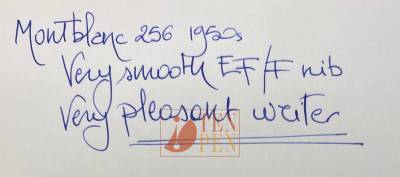 Montblanc 256 1950s
Very smooth EF/F nib
Very pleasant writer
TEN PEN